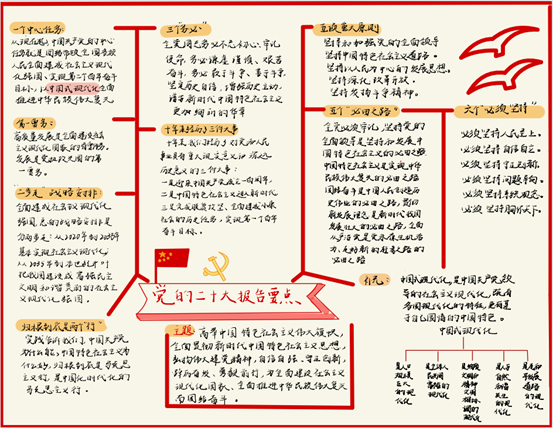 一个中心任务
从现在起，中国共产党的中心
任务就是团结带领全国各族
人民全面建成社会主义现代
化强国、实现第二个百年奋斗
目标，以中国式现代化全面
推进中华民族伟大复兴
第一要务:
高质量发展是全面建设社会
主义现代化国家的首要任务。
发展是党执政兴国的第
一要务。
二步走 战略安排:
全面建成社会主义现代化
强国，总的战略安排是
分两步走:从2020年到2035年
基本实现社会主义现代化;
从2035年到本世纪中叶
把我国建成富强民主
文明和谐美丽的社会
主义现代化强国。
归根到底是两个行"
实践告诉我们,中国共产党
为什么能，中国特色社会主义为
什么好,归根到底是马克思主
义行，是中国化时代化的马
克思主义行。
三个"务必"
全党同志务必不忘初心、牢记
使命，务必谦虚、谨慎、艰苦
奋斗，务必敢于斗争、善于斗争
坚定历史自信，增强历史主动，
谱写新时代中国特色社会主义
更加绚丽的华章
十年来经历了三件大事
十年来，我们经历了对党和人民
事业具有重大现实意义和深远
历史意义的三件大事:
一是迎来中国共产党成立一百周年，
二是中国特色社会主义进入新时代
三是完成脱贫攻坚、全面建成小康
社会的历史任务，实现第一个百年
奋斗目标。
五个重大原则
坚持和加强党的全面领导
坚持中国特色社会主义道路。
坚持以人民为中心的发展思想。
坚持深化改革开放。
坚持发扬斗争精神。
五个"必由之路"
全党必须牢记，坚持党的
全面领导是坚持和发展中
国特色社会主义的必由之路
中国特色社会主义是实现中华
民族伟大复兴的必由之路
团结奋斗是中国人民创造历
史伟业的必由之路，贯彻
新发展理念是新时代我国
发展壮大的必由之路，全面
从严治党是党永葆生机活
力、走好新的赶考之路
的必由之路
六个"必须坚持"
必须坚持人民至上。
必须坚持自信自立。
必须坚持守正创新，
必须坚持问题导向
必须坚持系统观念。
必须坚持胸怀天下。
党的二十大报告要点
主题 高举中国特色社会主义伟大旗帜，
全面贯彻新时代中国特色社会主义思想，
弘扬伟大建党精神，自信自强、守正创新，
踔厉奋发、勇毅前行，为全面建设社会主义
现代化国家、全面推进中华民族伟大复兴
而团结奋斗。
中国式现代化,是中国共产党领
导的社会主义现代化，既有
各国现代化的共同特征，更有基
于自己国情的中国特色。
中国式现代化
是人口规模巨大的现代化
是全体人民共同富裕的现代化
是物质文明和精神文明相协调的现代化
是人与自然和谐共生的现代化
是走和平发展道路的现代化